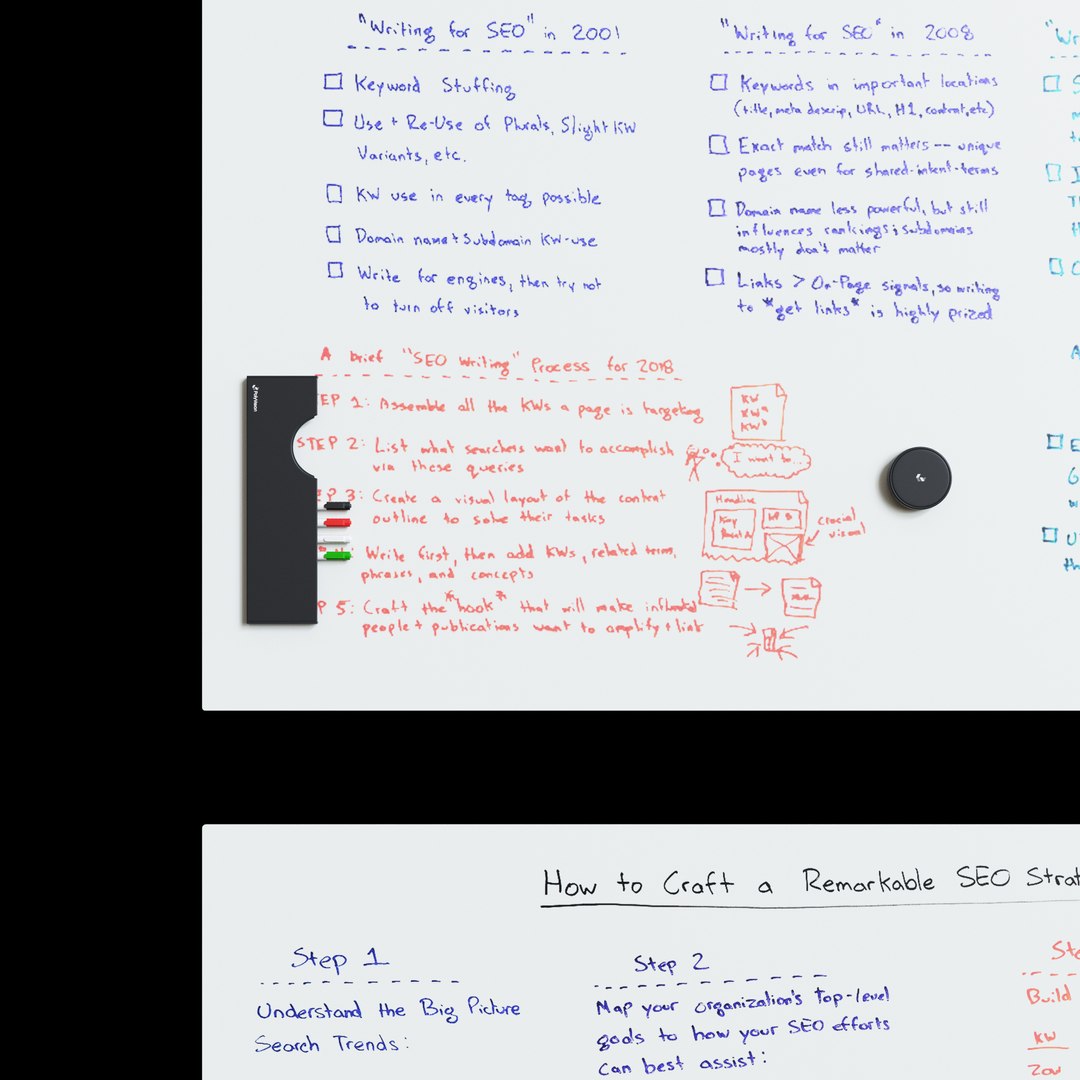 "Writing for SEO" in 2001
Keyword Stuffing
Use + Re-Use of Plurals, Slight KW
Variants, etc.
KW use in every tag possible
Domain name + Subdomain KW-use
Write for engines, then try not
to turn off visitors
"Writing for SEO" in 2008
Keywords in important locations
(title, meta descrip, URL, H1, content, etc)
Exact match still matters -- unique
pages even for shared-intent-terms
Domain name less powerful, but still
influences rankings; subdomains
mostly don't matter
Links > On-Page signals, so writing
to *get links* is highly prized
A brief "SEO Writing" Process for 2018
EP 1: Assemble all the KWs a page is targeting
STEP 2: List what searchers want to accomplish
via these queries
EP 3: Create a visual layout of the content
outline to solve their tasks
Write first, then add KWs, related terms,
phrases, and concepts
P 5: Craft the *hook* that will make influential
people + publications want to amplify + link
KW
KWª
KWᵇ
I want to...
Headline
Key
Crucial
visual
PolyVision
How to Craft a Remarkable SEO Strat
Step 1
Understand the Big Picture
Search Trends:
Step 2
Map your organization's top-level
goals to how your SEO efforts
can best assist:
Ste
Build
KW
Zou